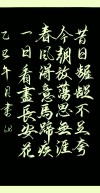 昔日龌龊不足夸
今朝放荡思无涯
春风得意马蹄疾
一日看尽长安花
乙巳年月书